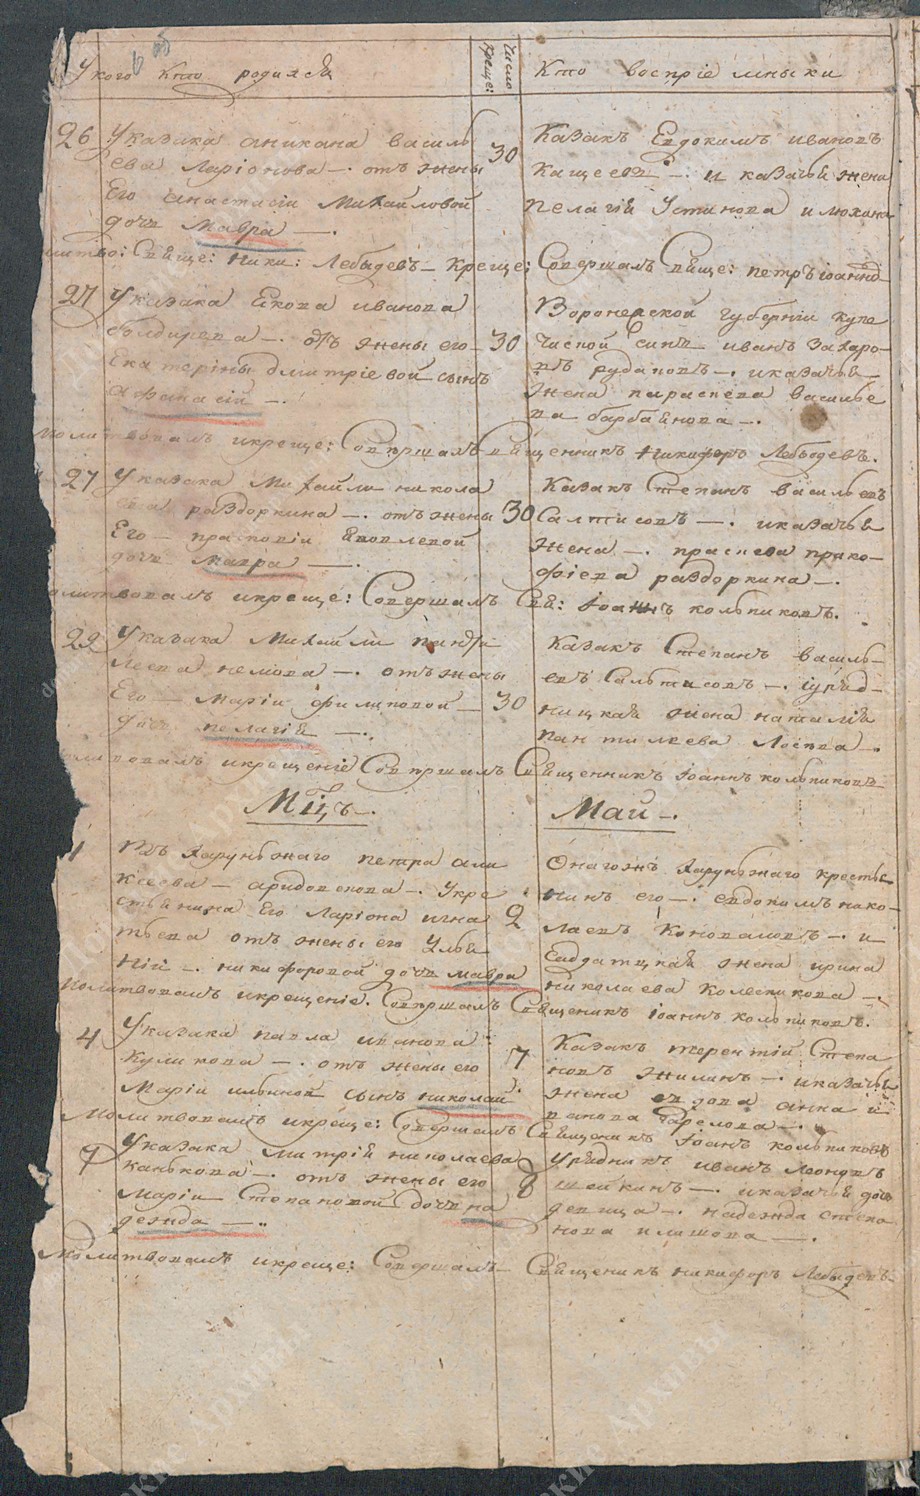 У кого Кто родился
Число креще:
Кто воспрiемники
26 Указака аникана василь
ева Ларiонова —. отъ жены
Его анастасiи Михайловой
дочь Мавра —.
30
Казакъ Евдокимъ ивановъ
Кащеевъ —. и казачья жена
пелагiя Устинова
Свяще: Ники: Лебедевъ — Креще: Совершалъ Свяще: петръ
27 Указака Якова иванова
болдырева —. отъ жены его
Екатерины дмитрiевой сынъ
афанасiй —.
30
Воронежской губернiи купе
ческой сынъ иванъ Захаро-
въ рудаковъ —. иказачья
жена параскева василье
ва барбанова —.
Молитвовалъ икреще: Совершалъ Священникъ Никифоръ Лебедевъ.
27 Указака Михайли никола
ева раздоркина —. отъ жены
Его — Яковлевой
дочь мавра —.
30
Казакъ Степанъ васильевъ
Салтисовъ —. иказачья
жена —. праскева проко-
фiева раздоркина —.
молитвовалъ икреще: Совершалъ Свя: Iоаннъ колпиковъ.
29 Указака Михайли
леева немова —. отъ жены
Его — Марiи филиповой —
дочь пелагiя —.
30
Казакъ Степанъ василь-
евъ Салтисовъ —. iуряд-
ницкая жена наталiя
пантилеева Лосева —.
молитвовалъ икрещенiе Совершалъ Священникъ Iоаннъ колпиковъ
Мцъ —. Май —.
1 Хорунжаго петра али
ксеева — —. Укре
стьянина Его Ларiона игна
тьева отъ жены его Улья
нiи —. никифоровой дочь мавра
2
Онагожъ Хорунжаго крестья
нинъ его —. евдокимъ нико-
лаевъ Коноваловъ —. и
Салдатцкая жена ирина
николаева Колесникова —.
Молитвовалъ икрещенiе. Совершалъ Священикъ iоаннъ колпиковъ.
4 Указака павла иванова
Куликова —. отъ жены его
Марiи ильиной сынъ николай
7
Казакъ терентiй Степа
новъ жилинъ —. иказачья
жена вдова анна
—.
Молитвовалъ икреще: Совершалъ Священикъ Iоанъ колпиковъ
7 Указака митрiя николаева
канькова —. отъ жены его
Марiи Степановой дочь на
дежда —.
8
Урядникъ иванъ Леоновъ
Шейкинъ —. иказачья дочь
девица —. надежда степа
нова —.
Молитвовалъ икреще: Совершалъ — Священикъ никифоръ Лебедевъ